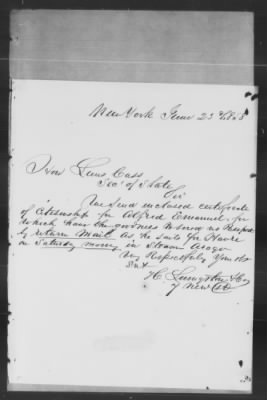 New York June 23d/1858
Hon Lewis Cass
Sec. of State
Sir
We Send inclosed certificate
of Citizenship for Alfred Emanuel, for
which have the goodness to Send us Passport
by return Mail, as he sails for Havre
on Saturday morning in Steamer Arago
Very Respectfully Your
H. Livingston & Co